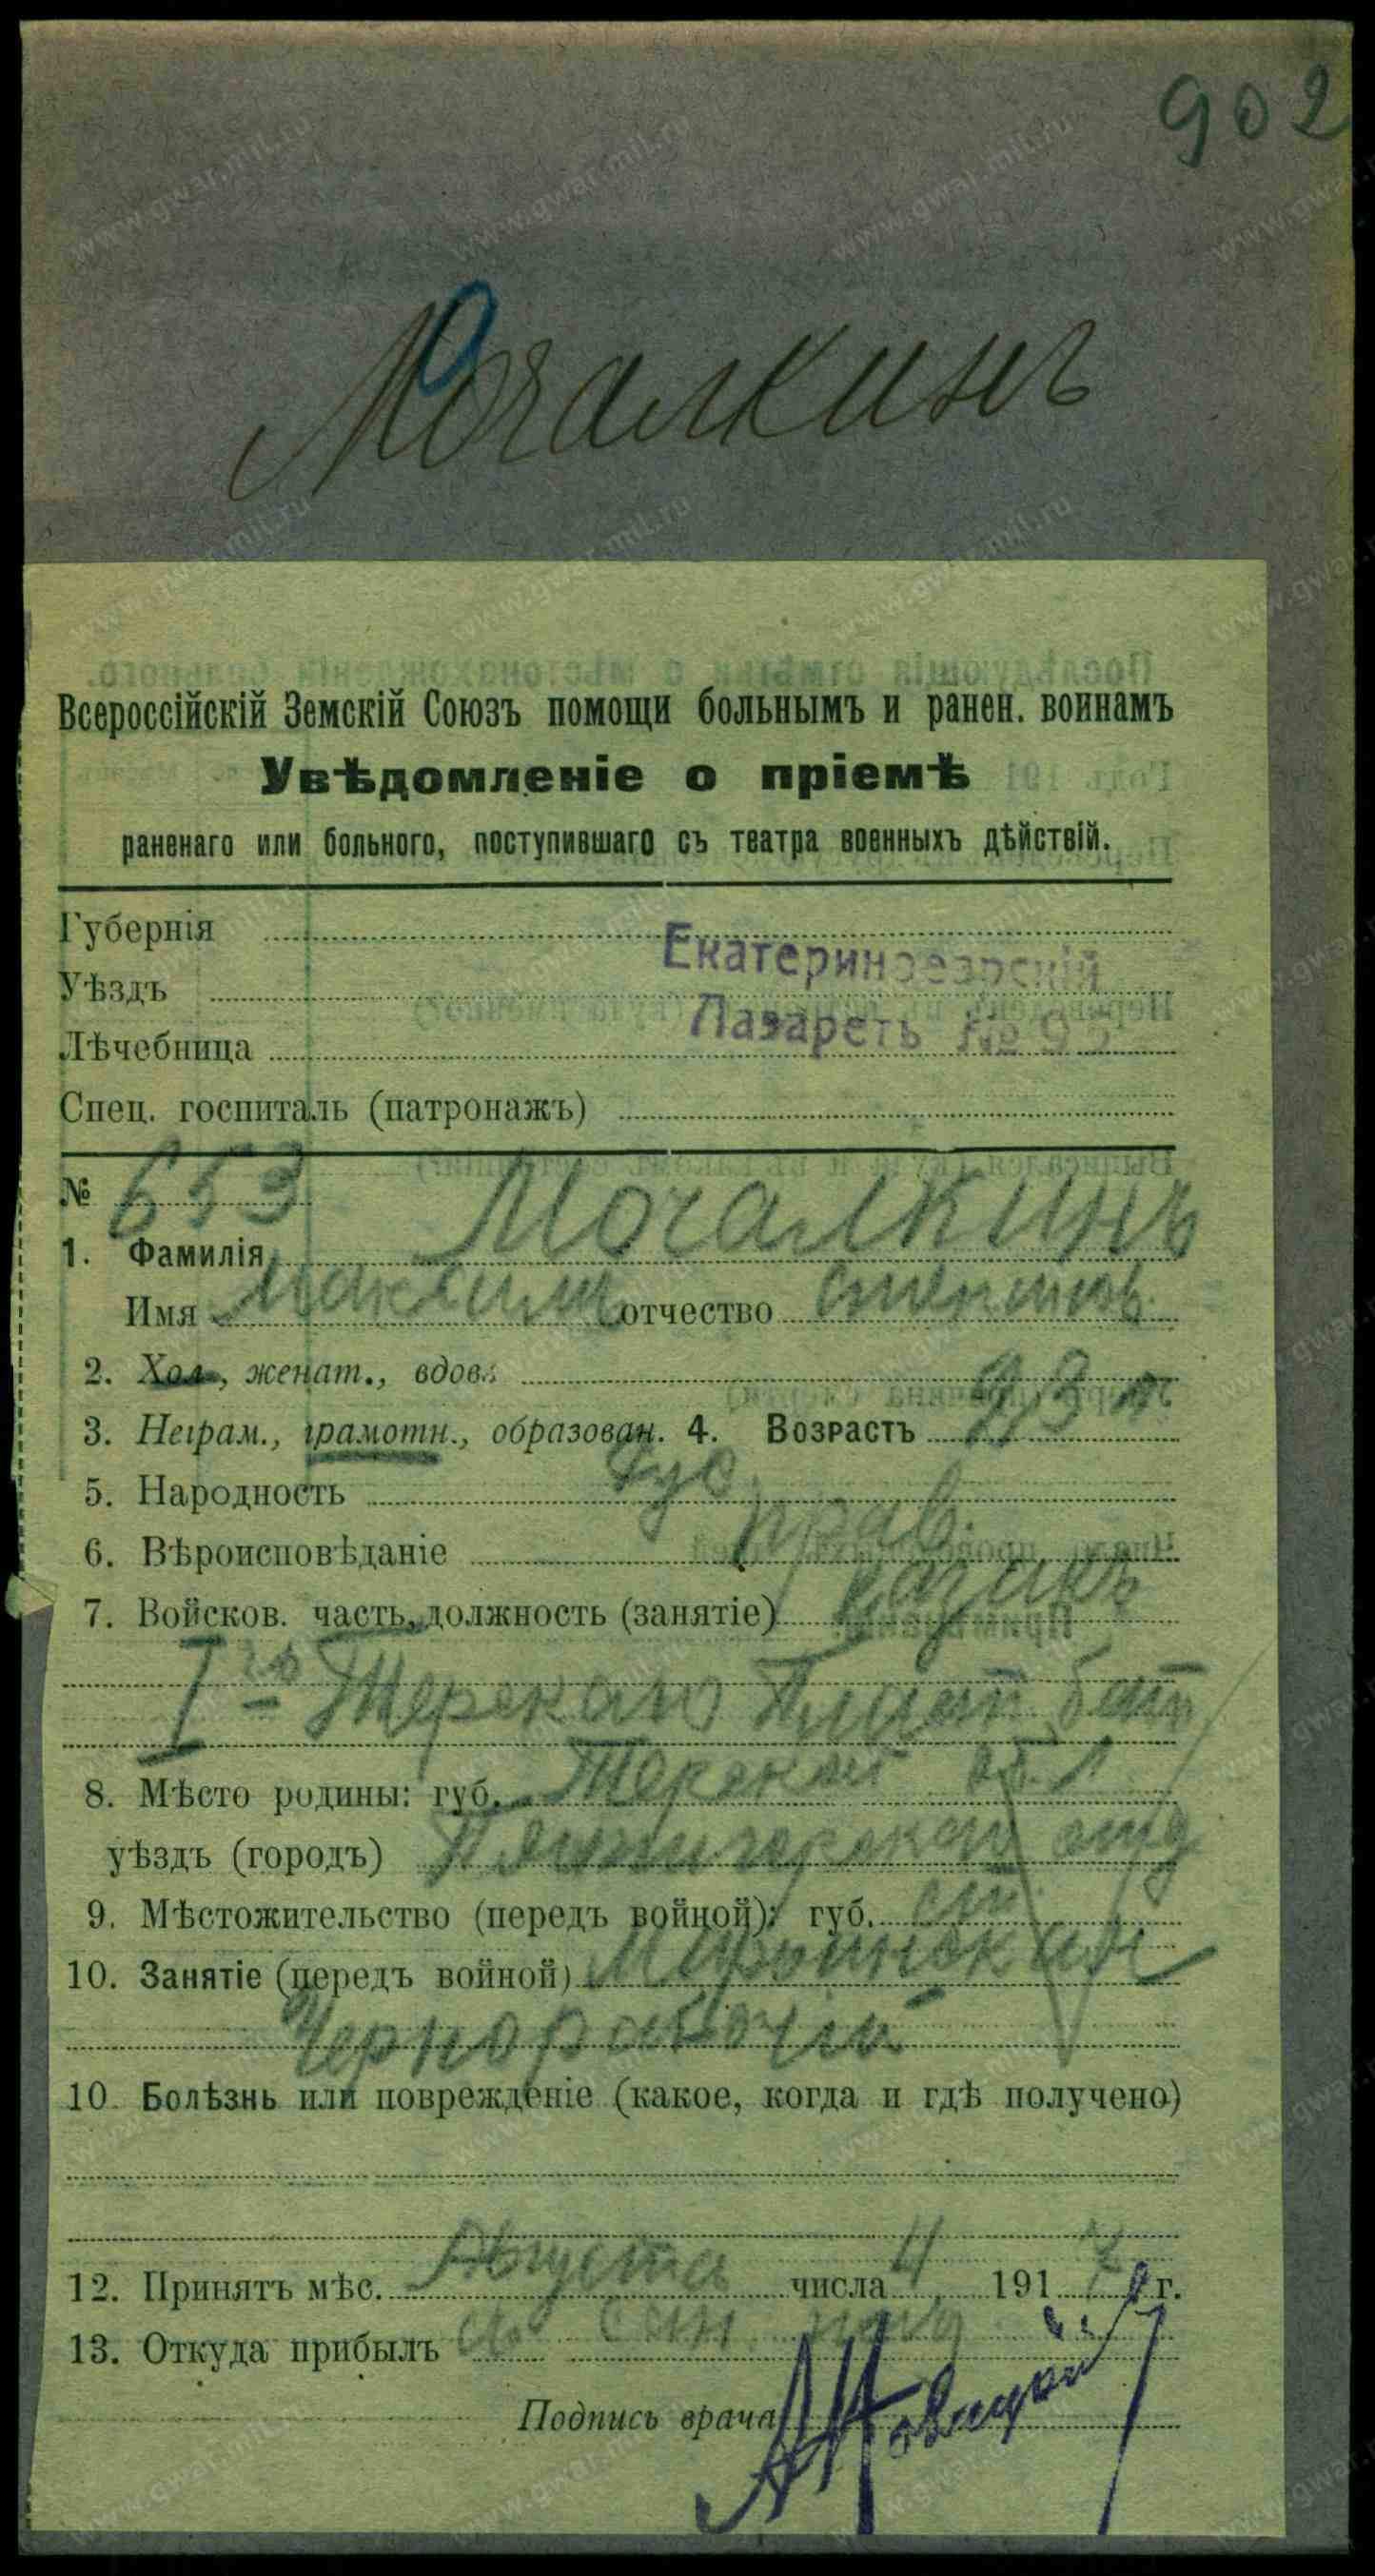 902
Мочалкинъ
Всероссійскій Земскій Союзъ помощи больнымъ и ранен. воинамъ
Увѣдомленіе о пріемѣ
раненаго или больного, поступившаго съ театра военныхъ дѣйствій.
Губернія
Екатеринодарскій
Уѣздъ
Лазаретъ №
Лѣчебница
Спец. госпиталь (патронажъ)
№ 653
1. Фамилія Мочалкинъ
Имя Максимъ отчество
2. Хол., женат., вдов.
3. Неграм., грамотн., образован. 4. Возрастъ 23 л.
5. Народность Рус.
6. Вѣроисповѣданіе прав.
7. Войсков. часть, должность (занятіе) Казакъ
I го Терскаго Пласт бат
8. Мѣсто родины: губ. Терской обл
уѣздъ (городъ) Пятигорскаго отд
9. Мѣстожительство (передъ войной): губ. ст
10. Занятіе (передъ войной)
Чернорабочій
10. Болѣзнь или поврежденіе (какое, когда и гдѣ получено)
12. Принятъ мѣс. Августа числа 4 1917 г.
13. Откуда прибылъ Сан.
Подпись врача
www.gwar.mil.ru